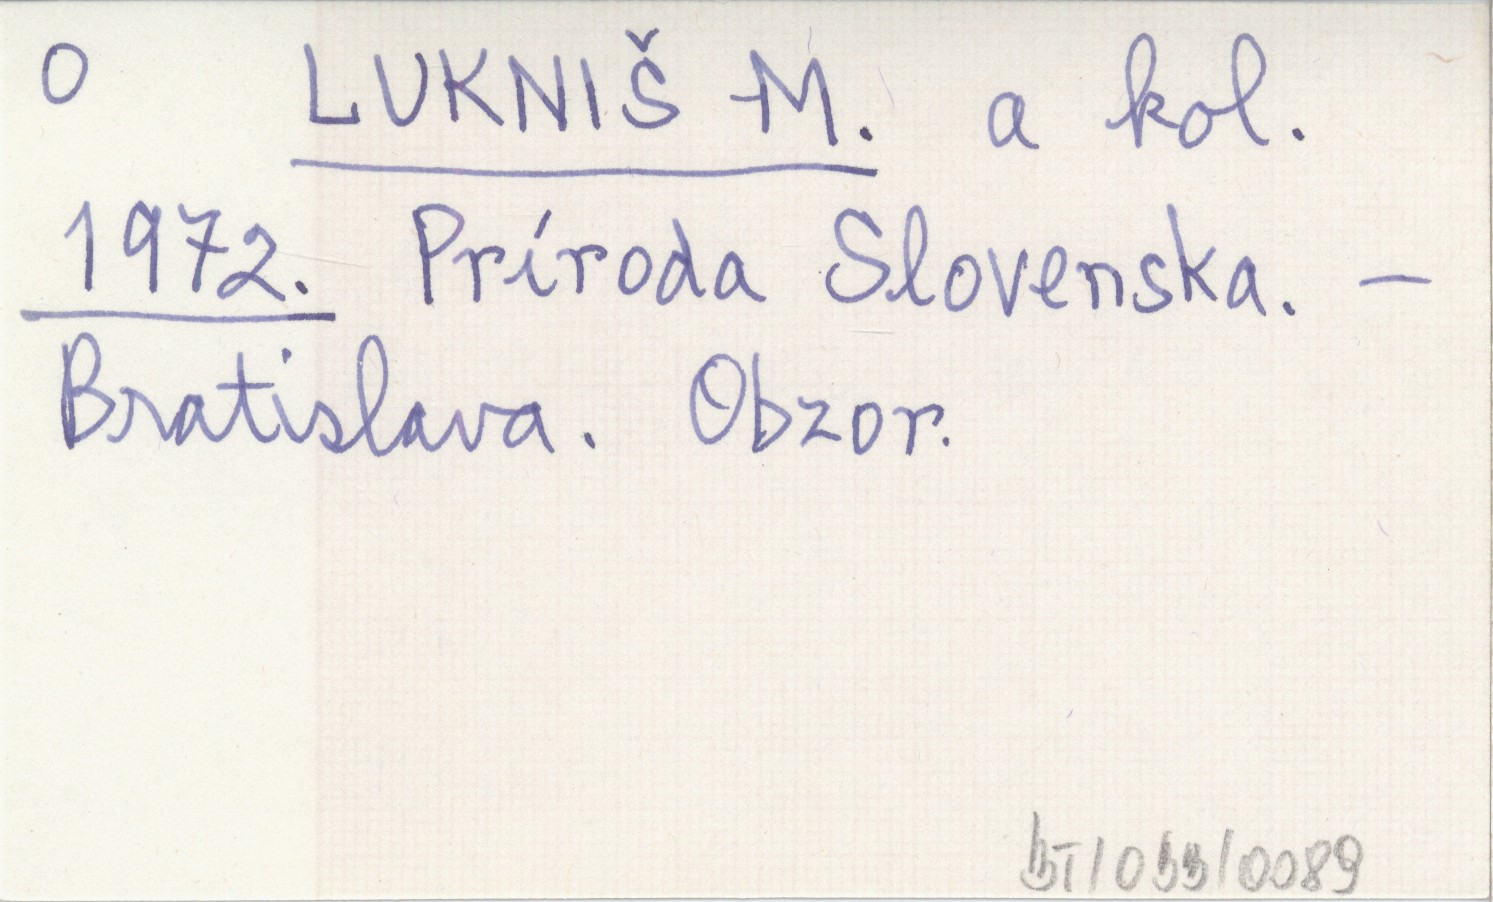 O LUKNIŠ M. a kol.
1972. Príroda Slovenska. –
Bratislava. Obzor.